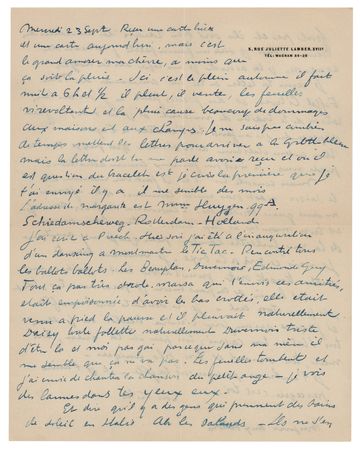 Mercredi 23 Sept. Reçu une carte hier
5, RUE JULIETTE LAMBER, XVIIe
TÉL: WAGRAM
et une carte aujourd'hui, mais c'est
le grand amour ma chère, à moins que
ça soit la pluie - Ici c'est le plein automne il fait
nuit à 6h et 1/2 il pleut, il vente, les feuilles
virevoltent et la pluie cause beaucoup de dommages
aux maisons et aux champs. Je ne sais pas combien
de temps mettent des lettres pour arriver à la
mais la lettre dont tu me parle avoir reçu et où il
est question du bracelet est je crois la première que je
t'ai envoyé il y a il me semble des mois
L'adresse de margante est Mme Huygen 99A
Schiedamscheweg. Rotterdam - Holland
J'ai écrit à Puech. Hier soir j'ai été à l'inauguration
d'un dancing à Montmartre le Tic Tac. Rencontré tous
les ballots ballots. Les Duvernois, Edmonde Guy
Tout ça pas très drole, marsa qui
était empoisonnée d'avoir les bas crottés, elle était
venu à pied la pauvre et il pleuvait naturellement
Daisy très folette naturellement Duvernois triste
d'être là et moi pas gai parceque dans ma même il
me semble que ça ne va pas. Les feuilles tombent et
j'ai envie de chanter la chanson du petit ange - je vois
des larmes dans tes yeux eux.
Et dire qu'il y a des gens qui prennent des bains
de soleil en Italie Ah les salauds - Ils ne s'en